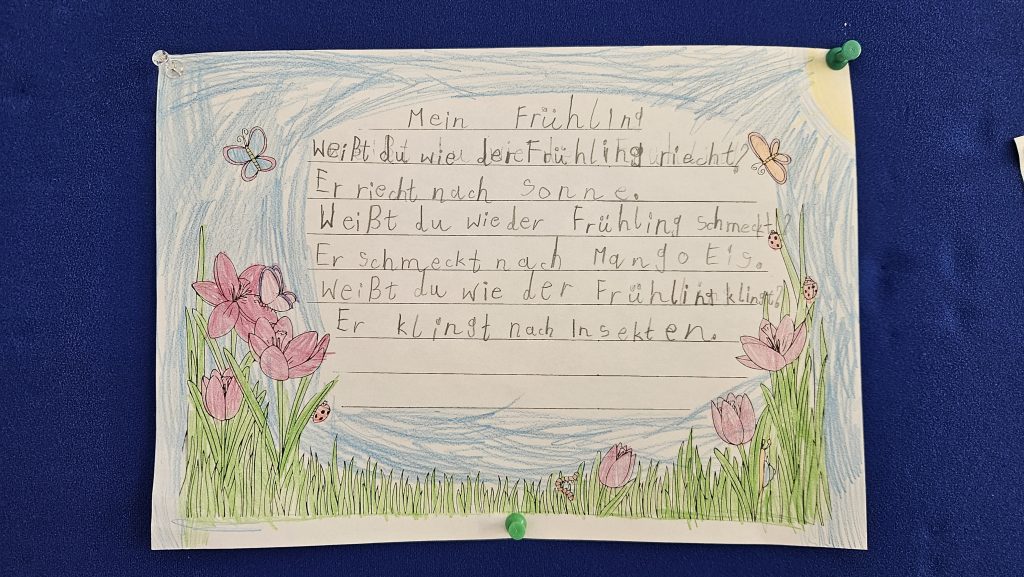 Mein Frühling
Weißt du wie der Frühling riecht?
Er riecht nach Sonne.
Weißt du wie der Frühling schmeckt?
Er schmeckt nach Mango Eis.
Weißt du wie der Frühlint klingt?
Er klingt nach Insekten.